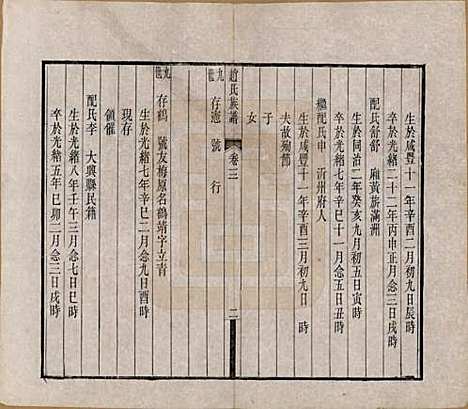 生於咸豐十一年辛酉二月初九日辰時
卒於光緒二十二年丙申正月念三日戌時
配氏舒舒 廂黃旗滿洲
生於同治二年癸亥九月初五日寅時
卒於光緒七年辛巳十一月念五日丑時
繼配氏申 沂州府人
生於咸豐十一年辛酉三月初九日 時
夫故殉節
子
女
趙氏族譜 卷三 二
九世 存憲 號 行
九世 存鶴 號友梅原名鶴靖字立青
生於光緒七年辛巳二月念九日酉時
現存
領催
配氏李 大興縣民籍
生於光緒八年壬午三月念七日巳時
卒於光緒五年己卯二月念三日戌時